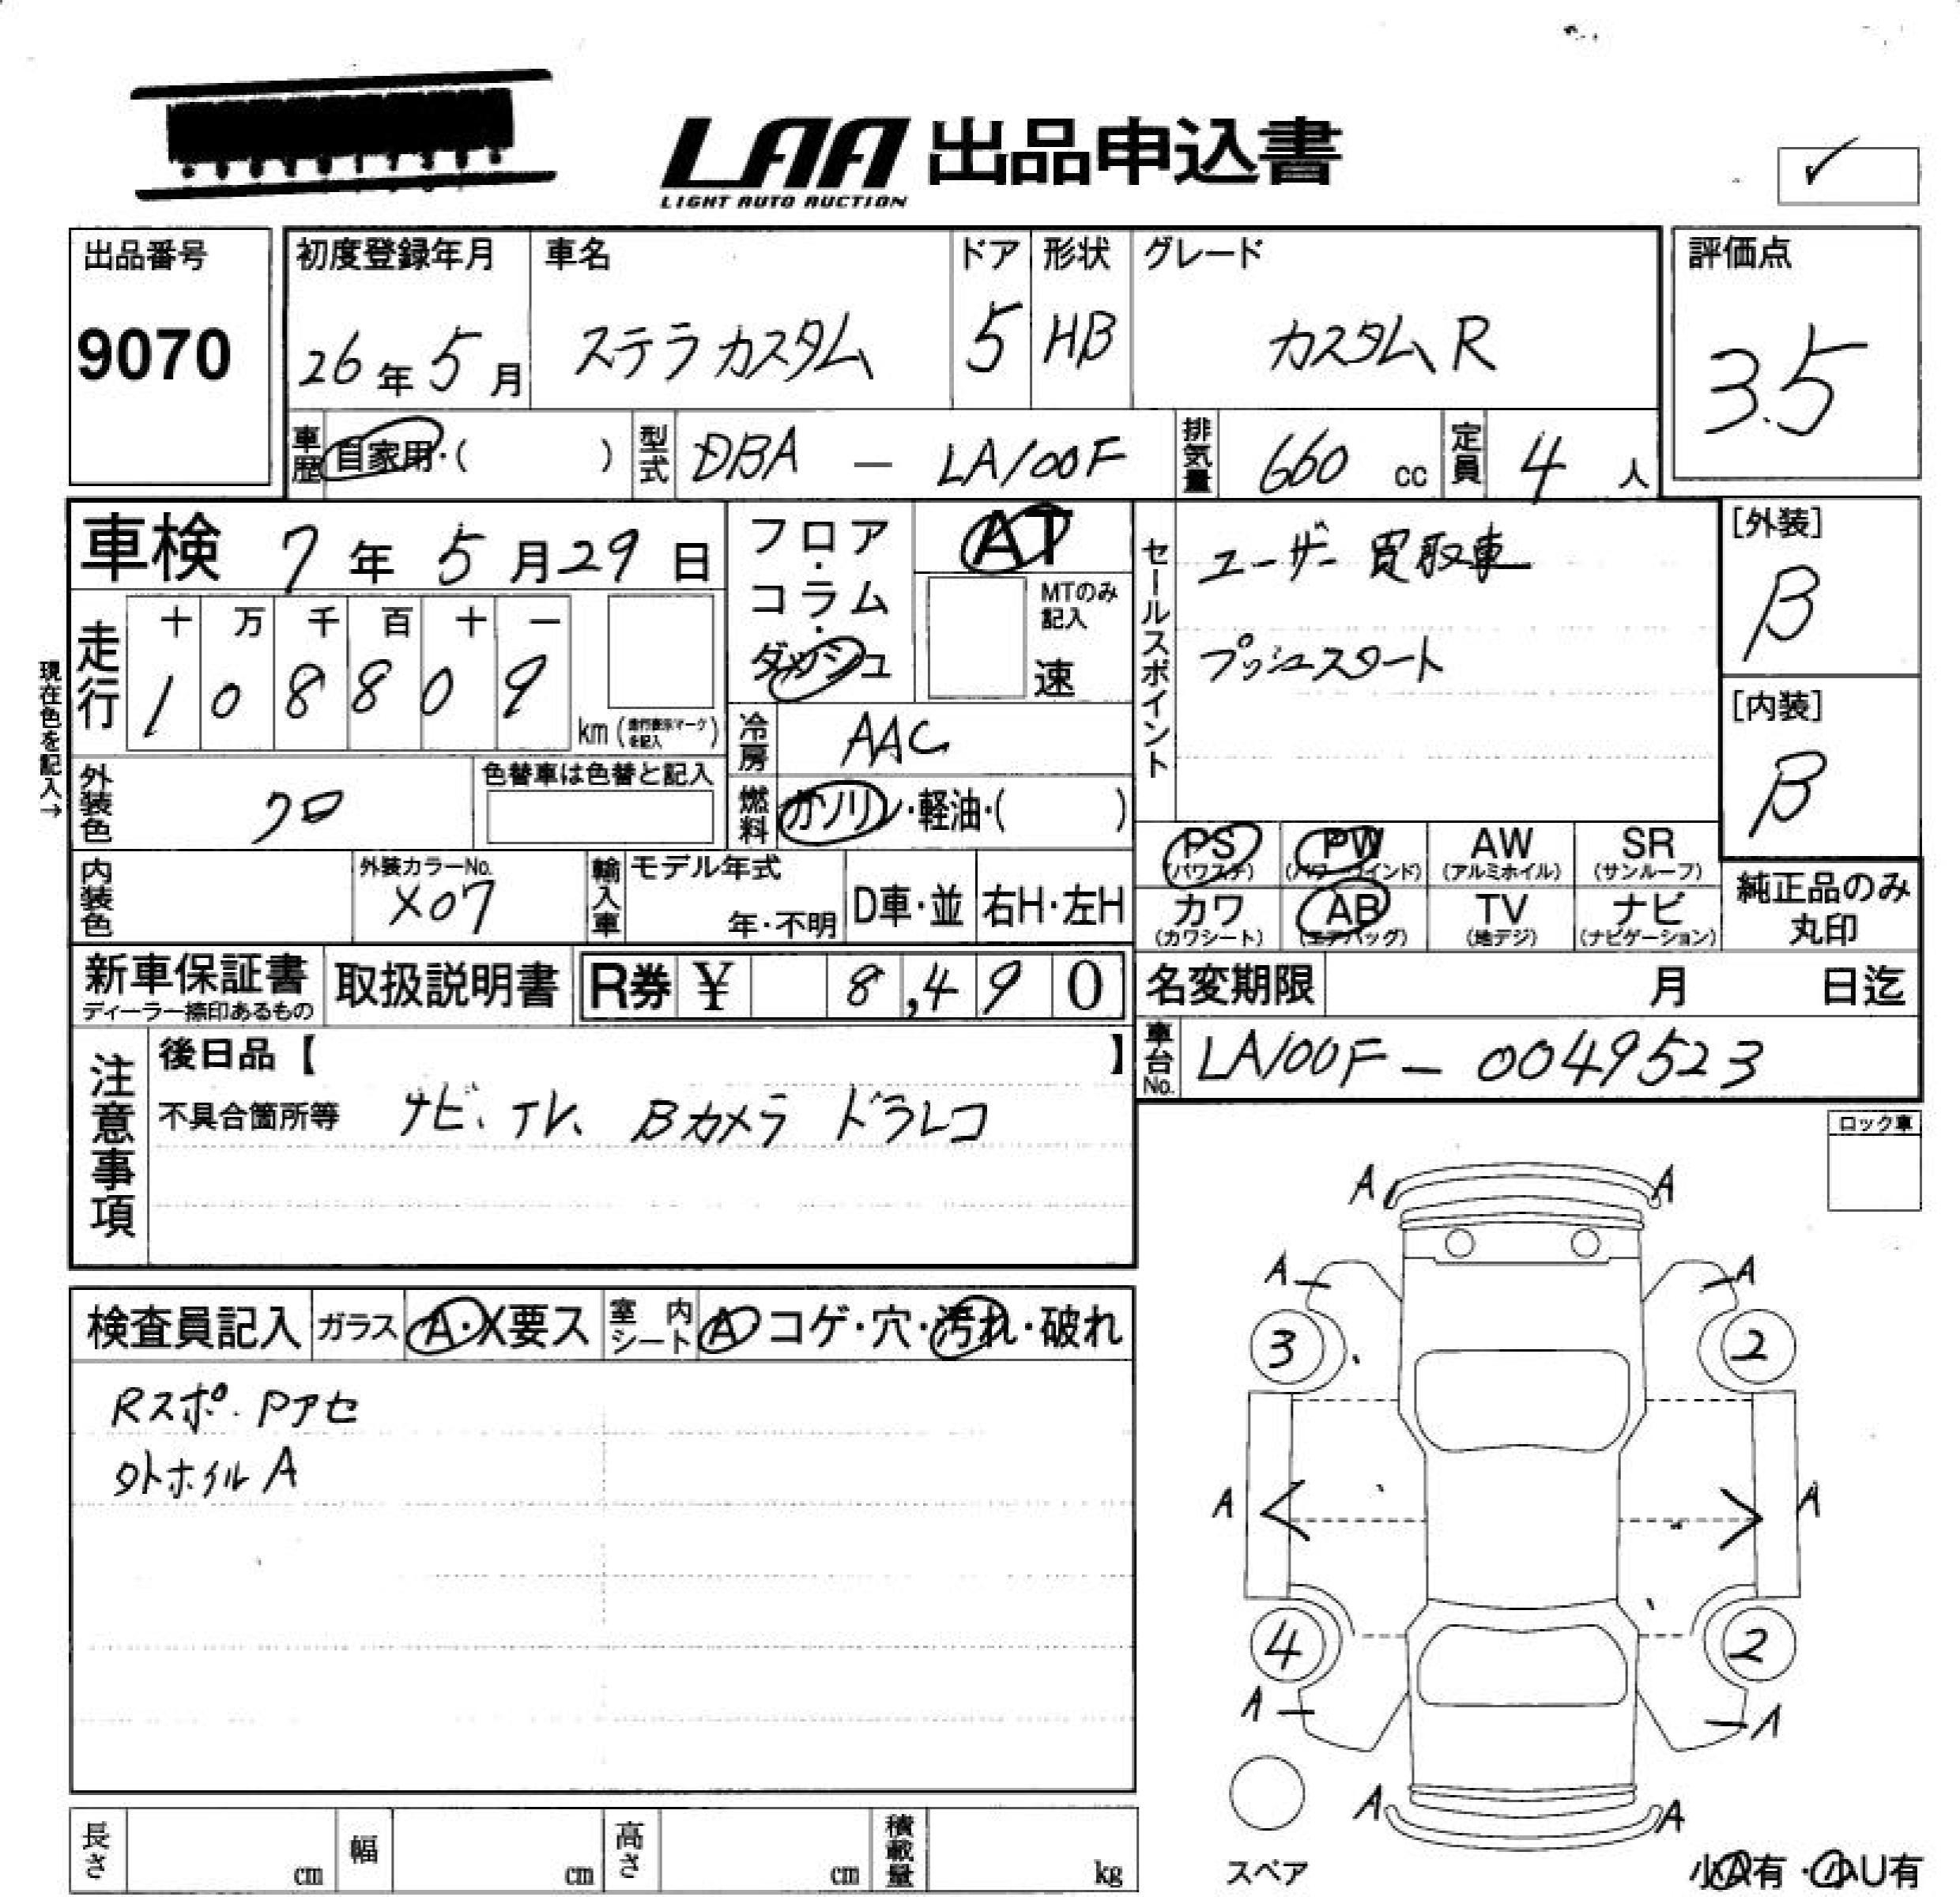 LAA 出品申込書
LIGHT AUTO AUCTION
出品番号
9070
初度登録年月
26年 5月
車名
ステラカスタム
ドア
5
形状
HB
グレード
カスタムR
評価点
3.5
車歴 自家用・( )
型式 DBA - LA100F
排気量 660 cc
定員 4 人
車検 7年 5月29日
現在色を記入→
走行 十 万 千 百 十 一
1 0 8 8 0 9
km (走行表示マークを記入)
外装色 クロ
色替車は色替と記入
内装色
外装カラーNo.
X07
フロア・コラム・ダッシュ
AT
MTのみ記入
速
冷房 AAC
燃料 ガソリン・軽油・( )
輸入車 モデル年式
年・不明
D車・並 右H・左H
セールスポイント
ユーザー買取車
プッシュスタート
[外装]
B
[内装]
B
PS (パワステ)
PW
AW (アルミホイル)
SR (サンルーフ)
カワ (カワシート)
AB (エアバッグ)
TV (地デジ)
ナビ (ナビゲーション)
純正品のみ
丸印
新車保証書
ディーラー捺印あるもの
取扱説明書
R券 ¥ 8,490
名変期限 月 日迄
車台No. LA100F - 0049523
注意事項
後日品【 】
不具合箇所等 ナビ、テレ、Bカメラ ドラレコ
ロック車
検査員記入
ガラス A・X要ス
室内シート A コゲ・穴・汚れ・破れ
Rスポ・Pアセ
外ホイルA
A A
A A
3 2
A A
4 2
A A
A A
スペア
小A有・小U有
長さ cm
幅 cm
高さ cm
積載量 kg